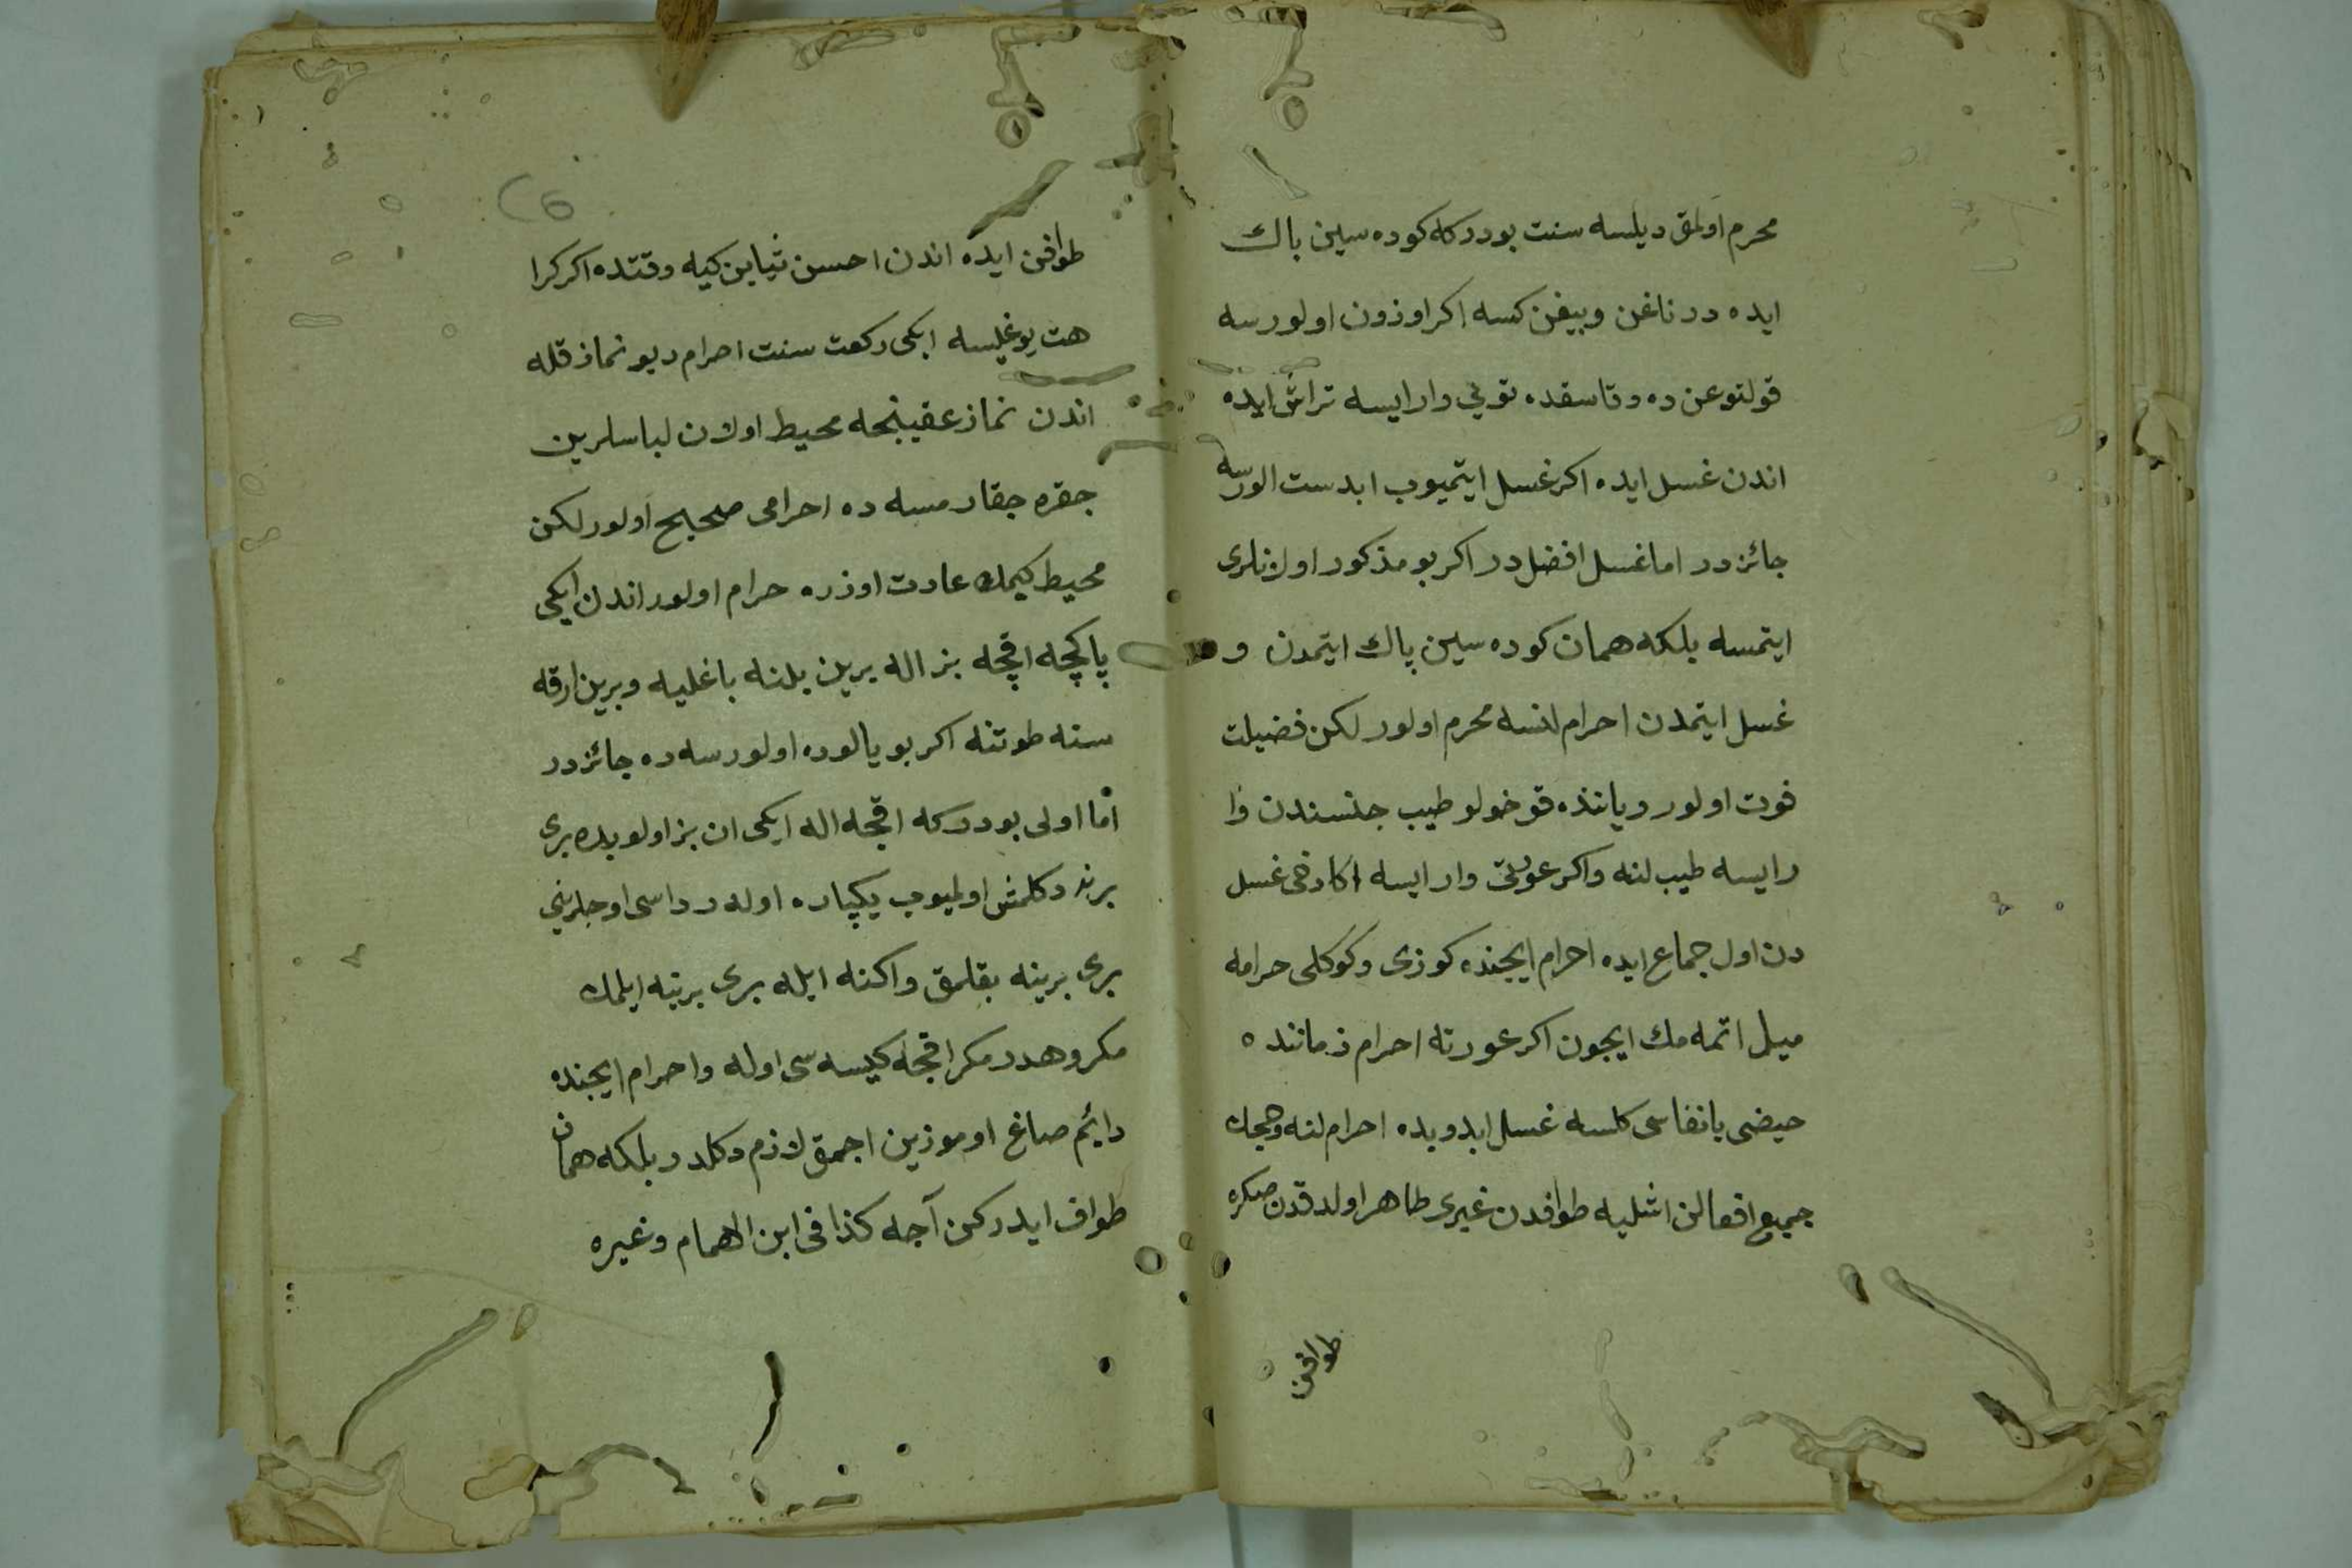 محرم اولمق ديلسه سنت بودركه كوده سين باك
ايده در ناغن وبيغن كسه اكر اوزون اولورسه
قولتوغن ده وقاسقده توبي وار ايسه تراش ايده
اندن غسل ايده اكر غسل ايتميوب ابدست الورسه
جائزدر اما غسل افضلدر اكر بو مذكور اولانلرى
ايتمسه بلكه همان كوده سين پاك ايتمدن و
غسل ايتمدن احرام لنسه محرم اولور لكن فضيلت
فوت اولور ويانذه قوخولو طيب جنسندن وا
رايسه طيب لنه واكر عورتى وار ايسه اكا دخى غسل
دن اول جماع ايده احرام ايجنده كوزى وكوكلى حرامه
ميل اتمه مك ايجون اكر عورته احرام زماننده
حيضى يا نفاسى كلسه غسل ايدوبده احرام لنه وحجك
جميع افعالن اشليه طوافدن غيرى طاهر اولدقدن صكره
طوافن
6
طوافن ايده اندن احسن ثيابن كيه وقتده اكر كرا
هت يوغيسه ايكى ركعت سنت احرام ديو نماز قله
اندن نماز عقيبنجه محيط اولان لباسلرين
جقره جقارمسه ده احرامى صحيح اولور لكن
محيط كيمك عادت اوزره حرام اولور اندن ايكى
پاكچه اقچه بز اله برين بلنه باغليه وبرين ارقه
سنه طوتنه اكر بويالوده اولورسه ده جائزدر
اما اولى بودركه اقچه اله ايكى ان بز اولوبده برى
برنه دكلمش اولميوب يكپاره اوله رداسى اوجلرينى
برى برينه بقلمق واكنه ايله برى برينه ايلمك
مكروهدر مكر اقچه كيسه سى اوله واحرام ايجنده
دائم صاغ اوموزين اجمق لازم دكلدر بلكه همان
طواف ايدركن آجه كذا فى ابن الهمام وغيره